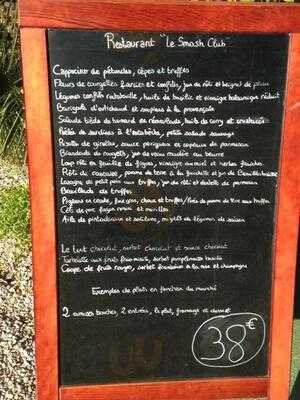 Restaurant "Le Smash Club"
Cappuccino de pétoncles, cèpes et truffes
Fleurs de courgettes farcies et confites, jus de rôti et beignet de fleur
Légumes confits ratatouille, huile de basilic et vinaigre balsamique réduit
Barigoule d'artichaud et supions à la provençale
Salade bêta de homard en rémoulade, huile de curry et crustacés
Poêlée de sardines à l'escabèche, petite salade sauvage
Risotto de girolles, sauce périgueux et copeaux de parmesan
Brandade de rougets, jus de veau moulé au beurre
Loup rôti en feuilles de figues, vinaigre au miel et herbes fraîches
Rôti de rascasse, pomme de terre à la fourchette et jus de Bouillabaisse
Lasagne de petit pois aux truffes, jus de rôti et dentelle de parmesan
Brouillade de truffes
Pigeons en croûte, foie gras, choux et truffes, purée de pomme de terre aux truffes
Côte de porc fumée et morilles
Aile de pintadeaux et salsifis, mijotés de légumes de saison
Le tout chocolat, sorbet chocolat et sauce chocolat
Tartelette aux fruits, sorbet pamplemousse basilic
Coupe de fruits rouges, sorbet framboise à la rose et champagne
Exemples de plats en fonction du marché
2 amuses bouches, 2 entrées, le plat, fromage et dessert
38€